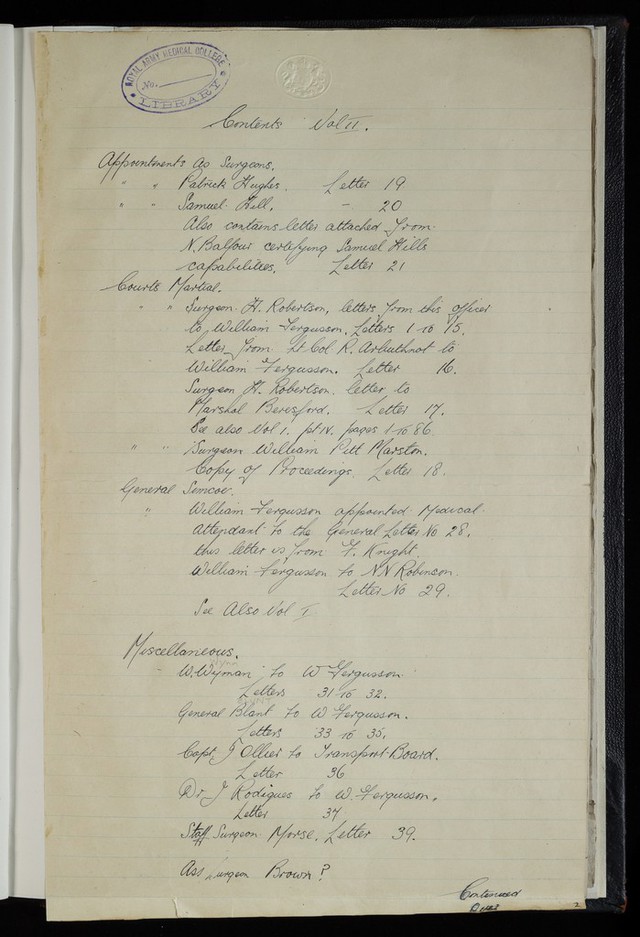 ROYAL ARMY MEDICAL COLLEGE
No.
LIBRARY
Contents Vol II.
Appointments as Surgeons.
" " Patrick Hughes. Letter 19
" " Samuel Hill. - 20
Also contains letter attached from
N. Balfour certifying Samuel Hills
capabilities. Letter 21
Courts Martial.
" " Surgeon H. Robertson, letters from this officer
to William Fergusson. Letters 1 to 15.
Letter from Lt Col. R. Arbuthnot to
William Fergusson. Letter 16.
Surgeon H. Robertson letter to
Marshal Beresford. Letter 17.
See also Vol 1. pt IV. pages 1 to 86
" " Surgeon William Pitt Marston.
Copy of Proceedings. Letter 18.
General Simcoe.
" William Fergusson appointed Medical
Attendant to the General Letter No 28.
this letter is from F. Knight.
William Fergusson to N N Robinson.
Letter No 29.
See Also Vol I.
Miscellaneous.
W. Wyman to W Fergusson
Letters 31 to 32.
General Blant to W Fergusson.
Letters 33 to 35.
Capt J Ollier to Transport Board.
Letter 36
Dr J Rodigues to W. Fergusson.
Letter 37
Staff Surgeon Morse. Letter 39.
Ass Surgeon Brown?
Continued
Over
2